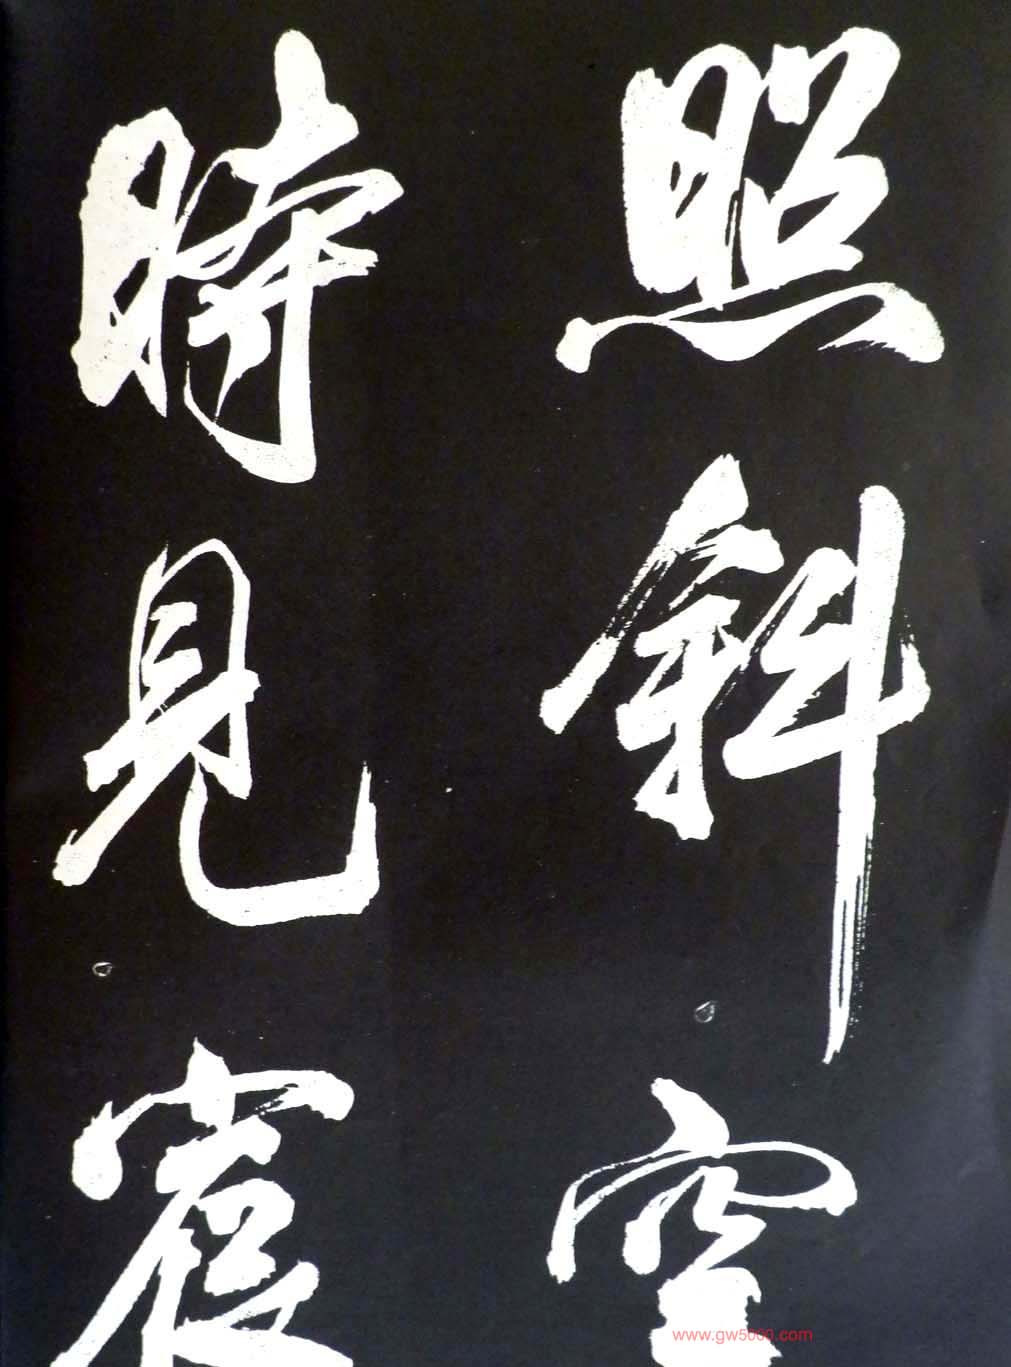 照斜空
時見
www.gw5000.com